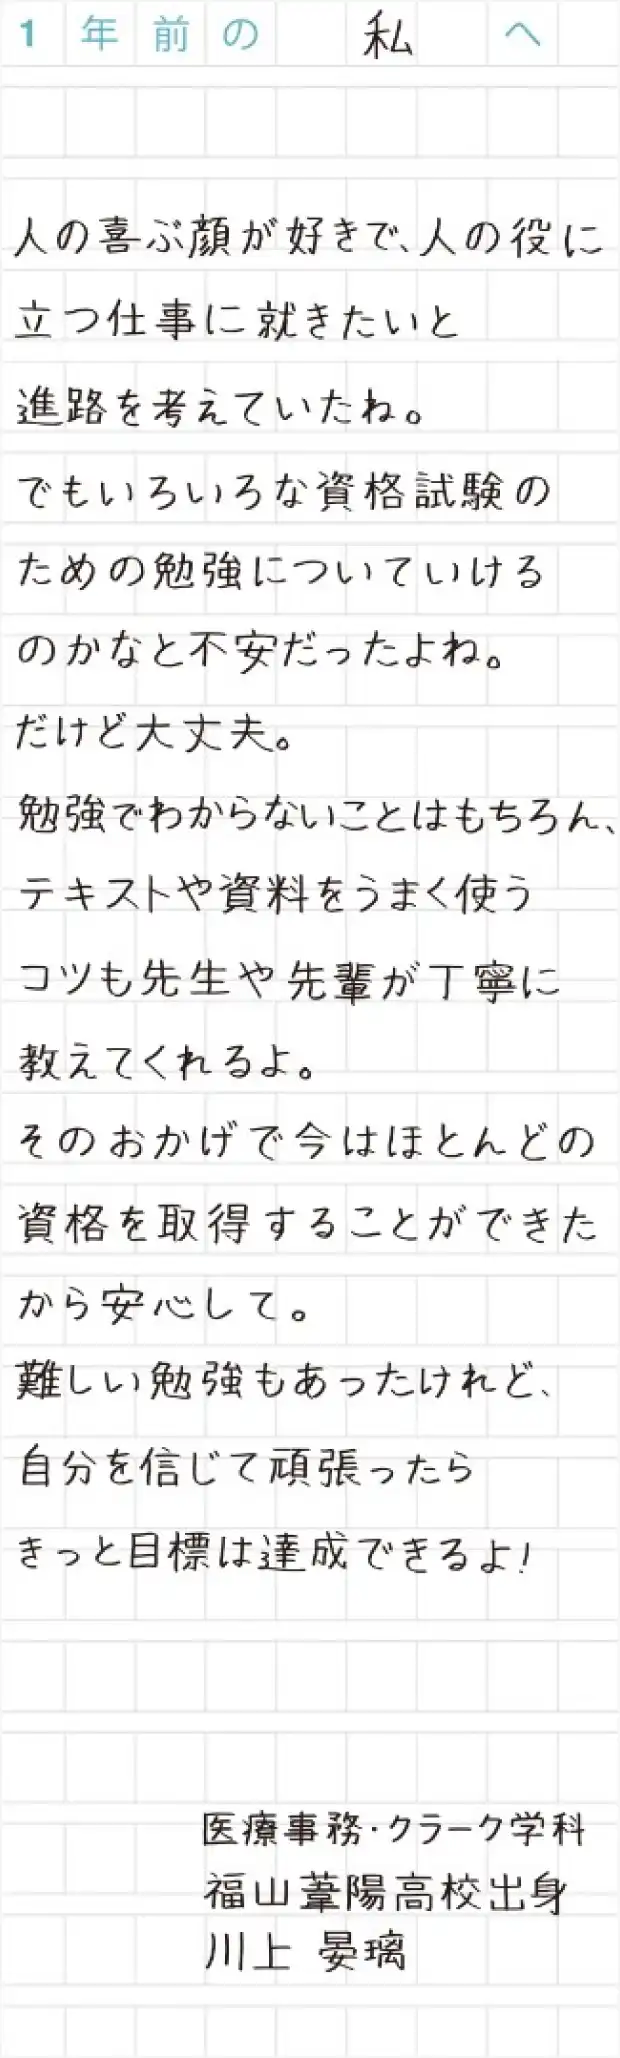 1年前の 私 へ
人の喜ぶ顔が好きで、人の役に
立つ仕事に就きたいと
進路を考えていたね。
でもいろいろな資格試験の
ための勉強についていける
のかなと不安だったよね。
だけど大丈夫。
勉強でわからないことはもちろん、
テキストや資料をうまく使う
コツも先生や先輩が丁寧に
教えてくれるよ。
そのおかげで今はほとんどの
資格を取得することができた
から安心して。
難しい勉強もあったけれど、
自分を信じて頑張ったら
きっと目標は達成できるよ!
医療事務・クラーク学科
福山葦陽高校出身
川上 晏璃